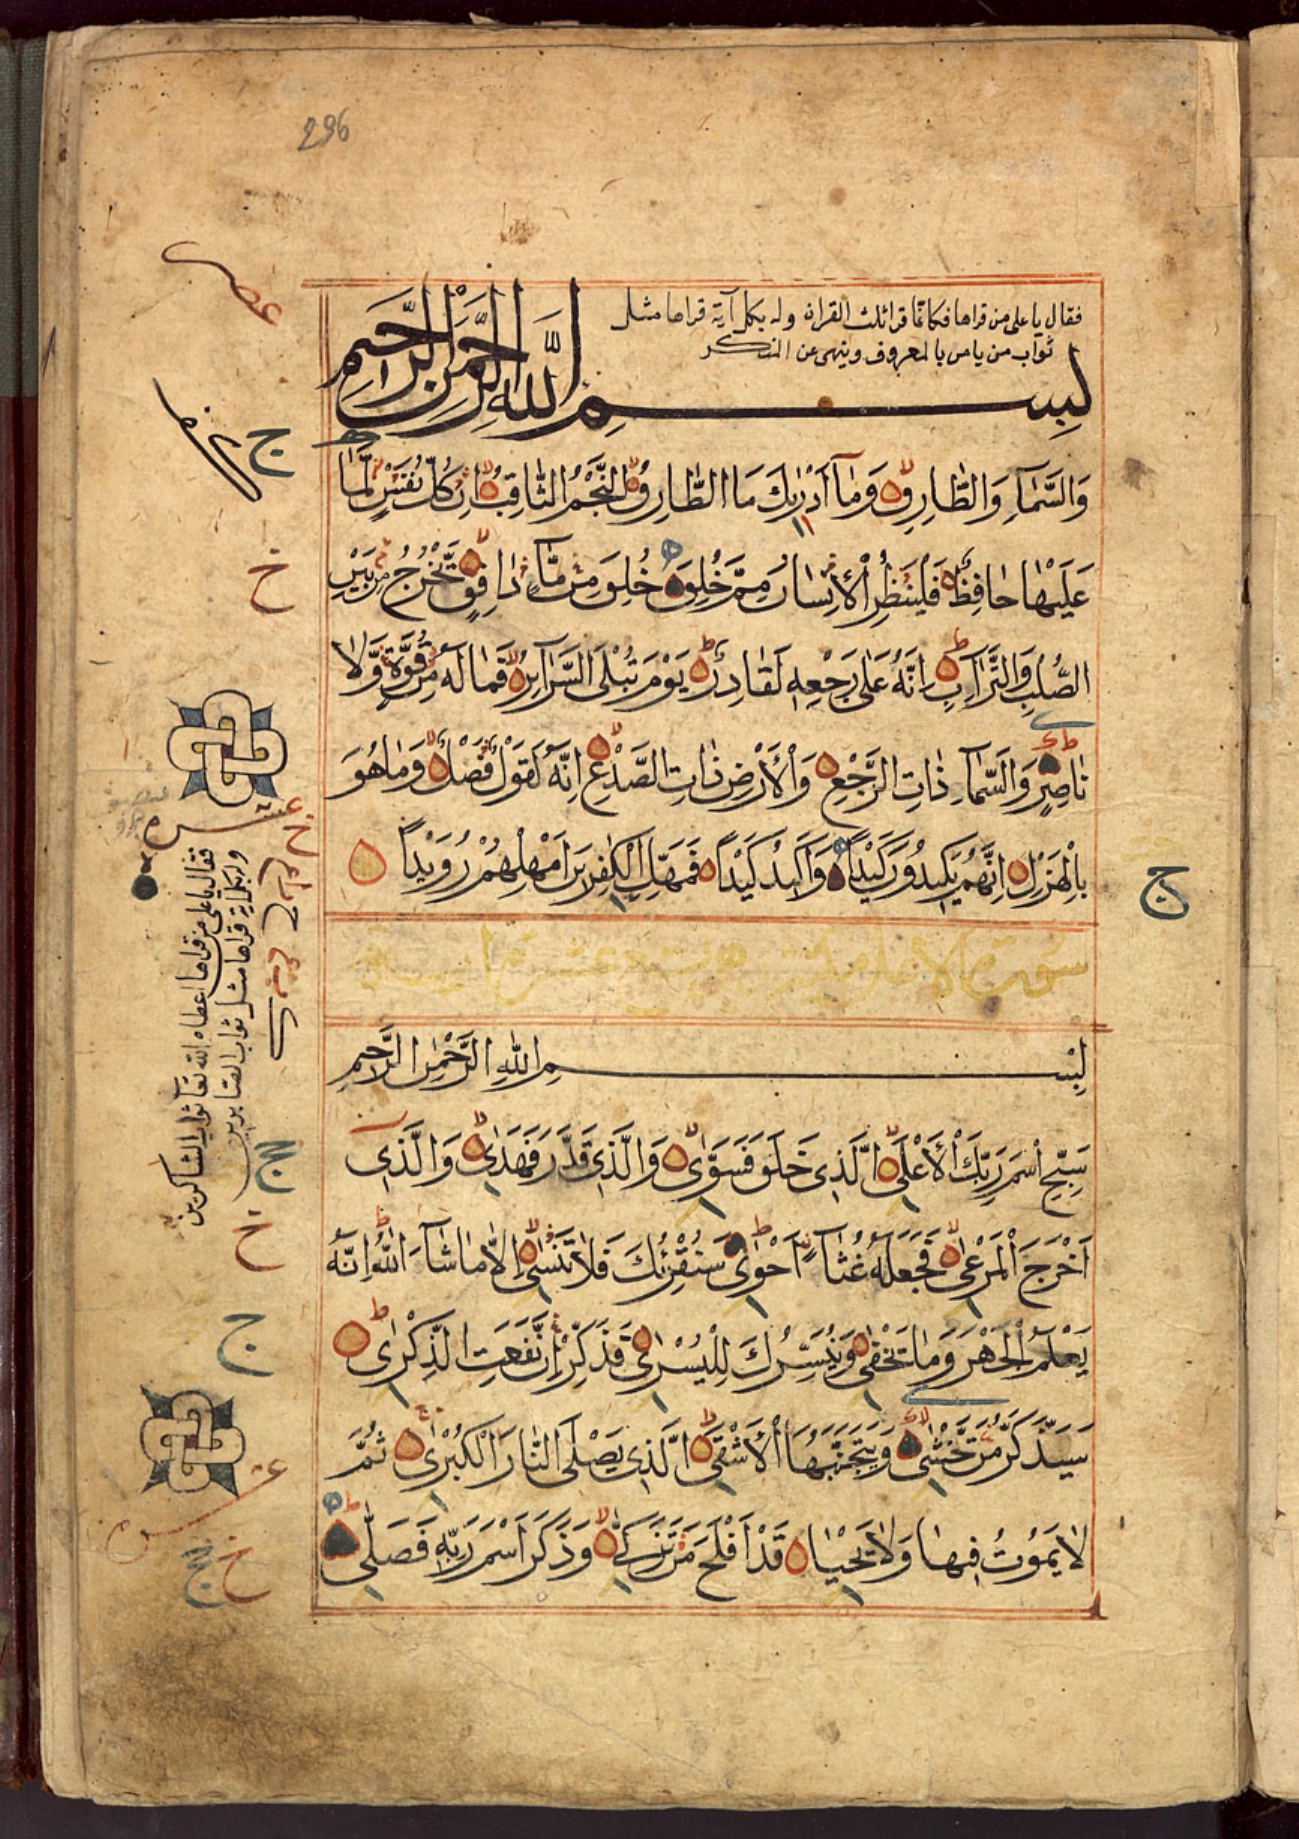 296
فقال يا على من قراها فكانما قرا ثلث القران وله بكل آية قراها مثل
ثواب من يامر بالمعروف وينهى عن المنكر
بِسْمِ اللَّهِ الرَّحْمٰنِ الرَّحِيمِ
وَالسَّمَآءِ وَالطَّارِقِ وَمَآ اَدْرٰىكَ مَا الطَّارِقُ النَّجْمُ الثَّاقِبُ اِنْ كُلُّ نَفْسٍ لَّمَّا
عَلَيْهَا حَافِظٌ فَلْيَنْظُرِ الْاِنْسَانُ مِمَّ خُلِقَ خُلِقَ مِنْ مَّآءٍ دَافِقٍ يَّخْرُجُ مِنْ بَيْنِ
الصُّلْبِ وَالتَّرَآئِبِ اِنَّهُ عَلٰى رَجْعِهِ لَقَادِرٌ يَوْمَ تُبْلَى السَّرَآئِرُ فَمَا لَهُ مِنْ قُوَّةٍ وَّلَا
نَاصِرٍ وَالسَّمَآءِ ذَاتِ الرَّجْعِ وَالْاَرْضِ ذَاتِ الصَّدْعِ اِنَّهُ لَقَوْلٌ فَصْلٌ وَمَا هُوَ
بِالْهَزْلِ اِنَّهُمْ يَكِيدُونَ كَيْدًا وَاَكِيدُ كَيْدًا فَمَهِّلِ الْكٰفِرِينَ اَمْهِلْهُمْ رُوَيْدًا
بِسْمِ اللهِ الرَّحْمٰنِ الرَّحِيمِ
سَبِّحِ اسْمَ رَبِّكَ الْاَعْلَى الَّذِى خَلَقَ فَسَوّٰى وَالَّذِى قَدَّرَ فَهَدٰى وَالَّذِى
اَخْرَجَ الْمَرْعٰى فَجَعَلَهُ غُثَآءً اَحْوٰى سَنُقْرِئُكَ فَلَا تَنْسٰى اِلَّا مَا شَآءَ اللّٰهُ اِنَّهُ
يَعْلَمُ الْجَهْرَ وَمَا يَخْفٰى وَنُيَسِّرُكَ لِلْيُسْرٰى فَذَكِّرْ اِنْ نَّفَعَتِ الذِّكْرٰى
سَيَذَّكَّرُ مَنْ يَّخْشٰى وَيَتَجَنَّبُهَا الْاَشْقَى الَّذِى يَصْلَى النَّارَ الْكُبْرٰى ثُمَّ
لَا يَمُوْتُ فِيهَا وَلَا يَحْيٰى قَدْ اَفْلَحَ مَنْ تَزَكّٰى وَذَكَرَ اسْمَ رَبِّهِ فَصَلّٰى
فقال يا على من قراها اعطاه الله تعا ثواب الشاكرين
وبكل آية قراها مثل ثواب الصابرين